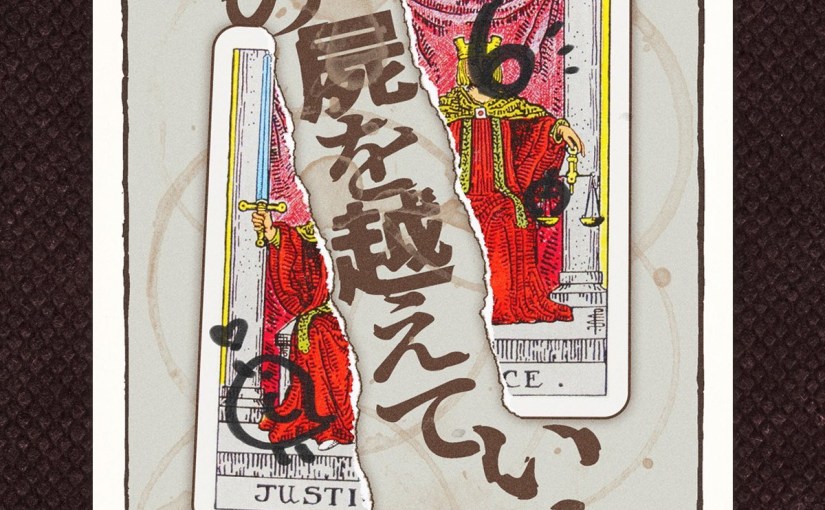 の屍を越えてい
JUSTI
CE.